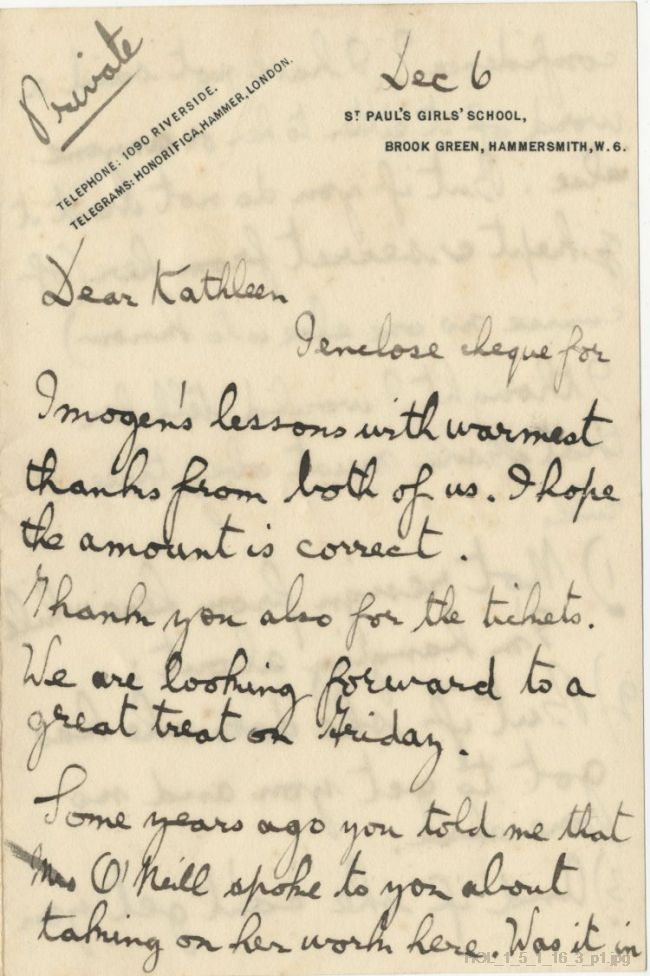 Private
Dec 6
TELEPHONE: 1090 RIVERSIDE.
TELEGRAMS: HONORIFICA, HAMMER, LONDON.
ST PAUL'S GIRLS' SCHOOL,
BROOK GREEN, HAMMERSMITH, W. 6.
Dear Kathleen
I enclose cheque for
Imogen's lessons with warmest
thanks from both of us. I hope
the amount is correct.
Thank you also for the tickets.
We are looking forward to a
great treat on Friday.
Some years ago you told me that
Mrs O'Neill spoke to you about
taking on her work here. Was it in
HOL_1_5_1_16_3_p1.jpg